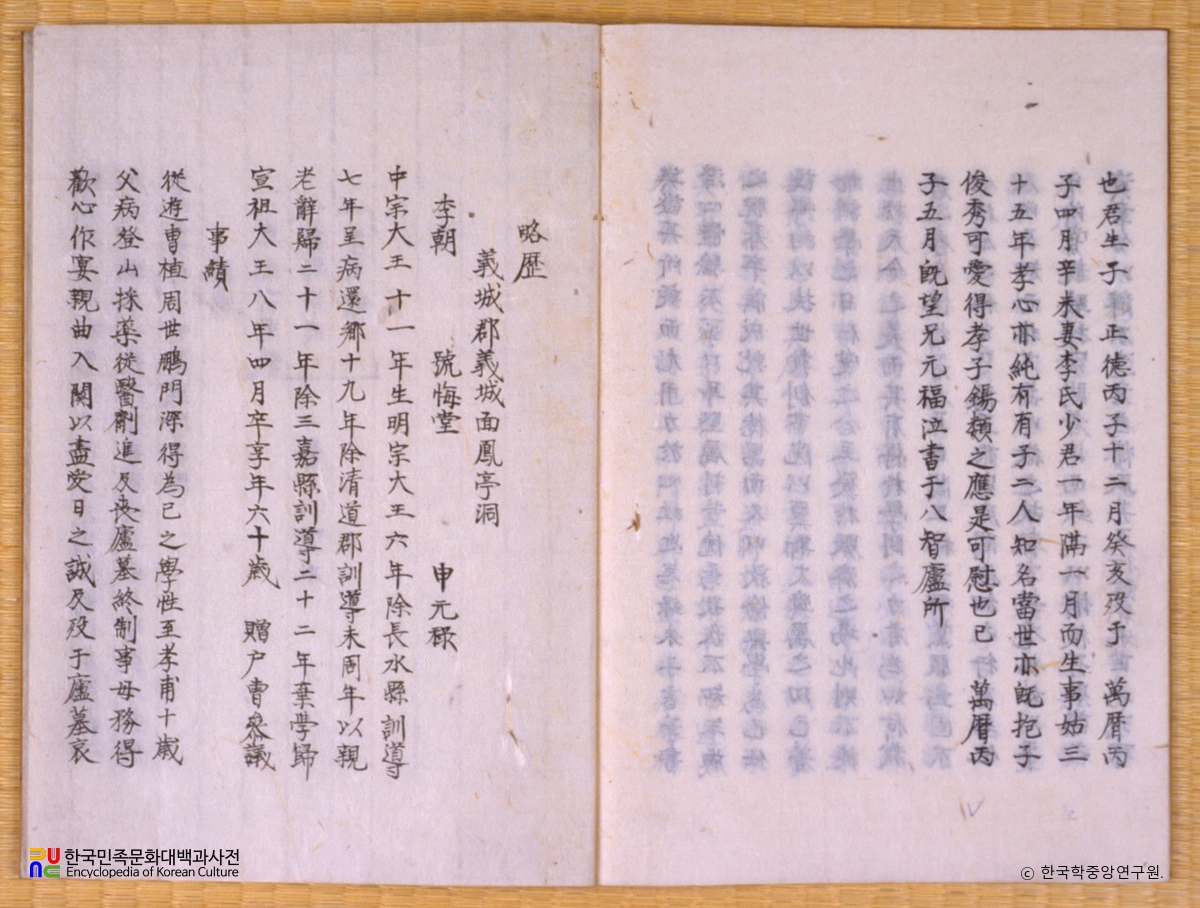 也君生于 正德丙子十二月癸亥歿于 萬曆丙
子四月辛未妻李氏少君一年滿一月而生事姑三
十五年孝心亦純有有子二人知名當世亦旣抱子
俊秀可愛得孝子錫類之應是可慰也已 萬曆丙
子五月旣望兄元福泣書于八智廬所
略歷
義城郡義城面鳳亭洞
李朝 號悔堂 申元祿
中宗大王十一年生明宗大王六年除長水縣訓導
七年呈病還鄉十九年除清道郡訓導未周年以親
老辭歸二十一年除三嘉縣訓導二十二年棄學歸
宣祖大王八年四月卒享年六十歲 贈戶曹參議
事績
從遊曺植周世鵬門深得為己之學性至孝甫十歲
父病登山採藥從醫劑進及喪廬墓終制事母務得
歡心作宴親曲入閱以盡愛日之誠及歿于廬墓哀
한국민족문화대백과사전
Encyclopedia of Korean Culture
ⓒ 한국학중앙연구원.